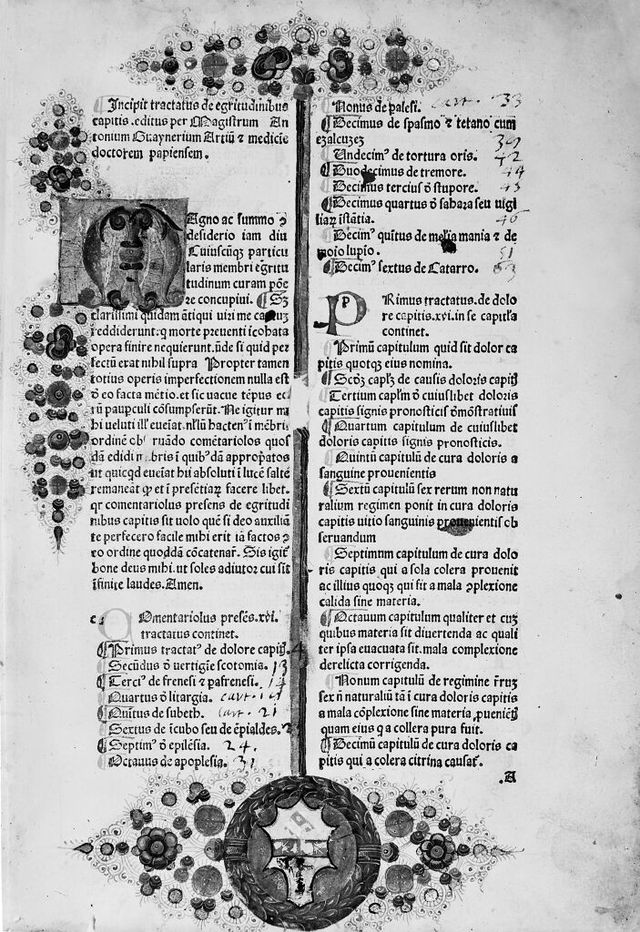 Incipit tractatus de egritudinibus
capitis .editus per Magistrum An
tonium Guaynerium Artiũ ⁊ medicie
doctorem papiensem.
MAgno ac summo ꝓ
desiderio iam diu
Cuiuscũqꝫ particu
laris membri egritu
tudinum curam põe
re concupiui. Sꝫ
clarissimi quidam ãtiqui viri me
reddiderunt: morte pꝛeuenti icobata
opera finire nequierunt. ũde si quid per
fectũ erat nibil supra Propter tamen
totius operis imperfectionem nulla est
eo facta mẽtio. et sic vacue tẽpus
pauꝑculi cõsumpserũt. Ne igitur ma
bi veluti ill' eueiat. bacten' i mẽbris
ordinẽ cõmetariolos quos
dã edidi bris i quib' dã appropatos
ut quicqd eueiat bii absoluti i lucẽ saltẽ
remaneat et i presẽtiaꝝ facere libet.
qr comentariolus presens de egritudi
nibus capitis sit uolo quẽ si deo auxiliã
te perfecero facile mihi erit ia factos
ro ordine quosdã cõcatenar. Sis igit'
bone deus mihi. ut soles adiutor cui sit
ĩfinite laudes. Amen.
COmentariolus presẽs .xvi.
tractatus continet.
Primus tractat' de dolore capit. 4
Secũdus õ vertigĩe scotomia. 13
Terci' de frenesi ⁊ pafrenesi. 14
Quartus õ litargia. cart.
Quĩtus de subeth. cart. 21
Sextus de icubo seu de ẽpialdes.
Septim' õ epilẽsia. 24.
Octauus de apoplesia. 31
Nonus de palesi. cart. 33
Decimus de spasmo ⁊ tetano cum
ezalcuzez 39
Undecim' de tortura oris. 42
Duodecimus de tremore. 44
Decimus tercius õ stupore. 45
Decimus quartus õ sabara seu vigi
liaꝝ istãtia. 46
Decim' quĩtus de melia mania ⁊ de
moio lupio. 51
Decim' sextus de Catarro. 53
PRimus tractatus. de dolo
re capitis .xvi. in se capitla
continet.
Primũ capitulum quid sit dolor ca
pitis quotqꝫ eius nomina.
Scõꝫ caplꝫ de causis doloris capit
Tertium caplm õ cuiuslibet doloris
capitis signis pronosticis õmõstratiuis
Quartum capitulum de cuiuslibet
doloris capitis signis pronosticis.
Quintũ capitulũ de cura doloris a
sanguine prouenientis
Sextũ capitulũ sex rerum non natu
ralium regimen ponit in cura doloris
capitis vitio sanguinis prouenientis ob
seruandum
Septimum capitulum de cura dolo
ris capitis qui a sola colera prouenit
ac illius quoqꝫ qui fit a mala ꝯplexione
calida sine materia.
Octauum capitulum qualiter et cuꝫ
quibus materia sit diuertenda ac quali
ter ipsa euacuata sit. mala complexione
derelicta corrigenda.
Nonum capitulũ de regimine rerꝫ
sex nõ naturaliũ tã i cura doloris capitis
a mala cõplexione sine materia ꝓueniẽt
quam eius q a collera pura fuit.
Decimũ capitulũ de cura doloris ca
pitis qui a colera citrina causat'.
.A